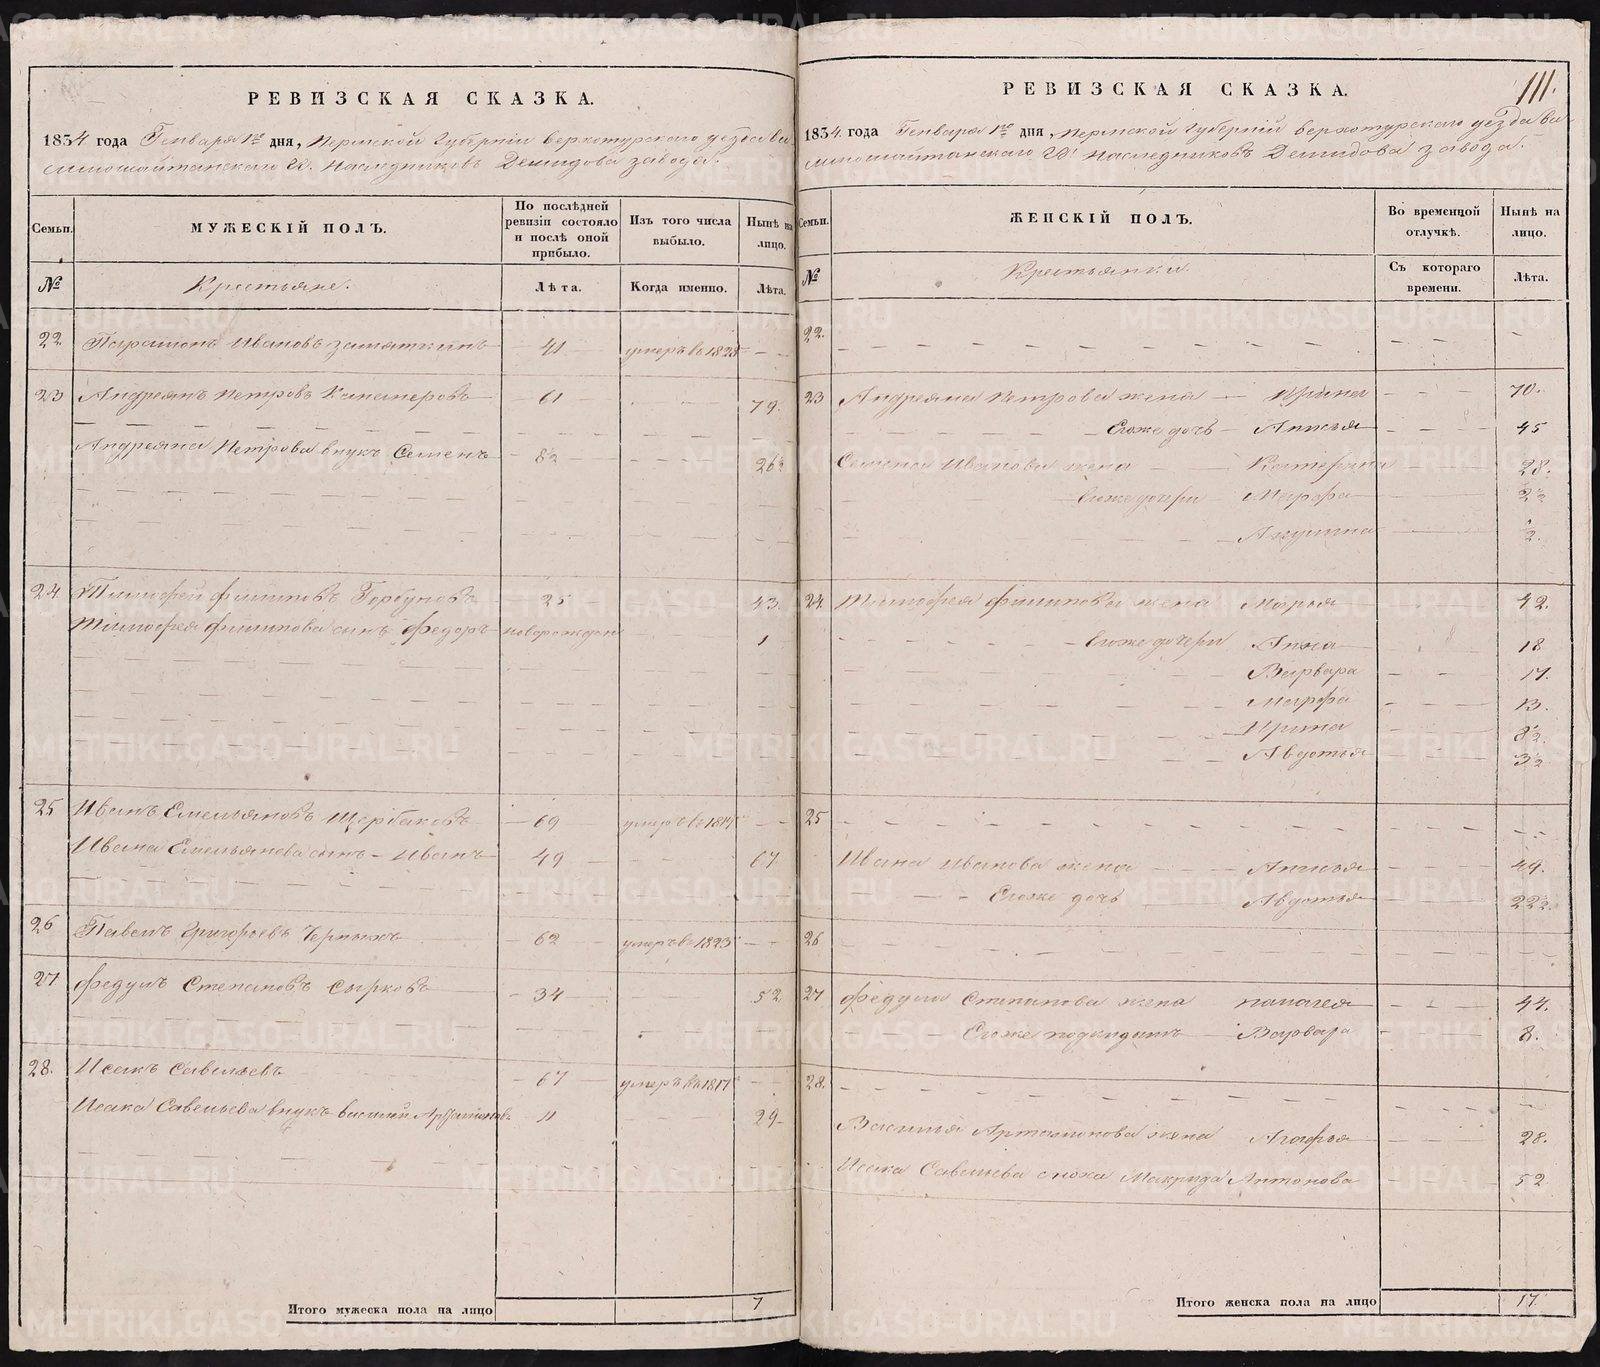 РЕВИЗСКАЯ СКАЗКА.
1834 года Генваря 1го дня, Пермской Губернїи верхотурскаго уезда ви
лимошайтанскаго Гд. Наследниковъ Демидова завода.
Семьи.
МУЖЕСКІЙ ПОЛЪ.
По послѣдней ревизіи состояло и послѣ оной прибыло.
Изъ того числа выбыло.
Нынѣ на лицо.
№
Крестьяне.
Лѣта.
Когда именно.
Лѣта.
22 Иванов 41 умеръ в 1828
23 Андреянъ Петровъ 61 79.
Андреяна Петрова внукъ Семенъ 82 26½
24 Тимофей филиповъ Горбуновъ 25 43.
Тимофея филипова сынъ федоръ новорожден 1
25 Иванъ Емельяновъ Щербаковъ 69 умеръ в
Ивана Емельянова сынъ Иванъ 49 67
26 Павелъ Григорьевъ Черныхъ 62 умеръ в 1823
27 федулъ Степановъ Сырковъ 34 52
28. Исакъ Савельевъ 67 умеръ в 1817
Исака Савельева внукъ василий Артамоновъ 11 29
Итого мужеска пола на лицо 7
РЕВИЗСКАЯ СКАЗКА.
111.
1834 года Генваря 1го дня, Пермской Губернїй верхотурскаго уезда ви
лимошайтанскаго Гд. Наследниковъ Демидова завода.
Семьи.
ЖЕНСКІЙ ПОЛЪ.
Во временной отлучкѣ.
Нынѣ на лицо.
№
Крестьянки
Съ котораго времени.
Лѣта.
22.
23 Андреяна Петрова жена Ирина 70.
Егоже дочь Анисья 45
Семена Иванова жена Катерина 28.
Егоже дочери Марфа 2½
Акулина ½.
24 Тимофея филипова жена Марья 42.
Егоже дочери Анна 18
Варвара 17.
Марфа 13.
Ирина 8½.
Авдотья 3½
25
Ивана Иванова жена Анисья 49.
Егоже дочь Авдотья 22½.
26
27 федула Степанова жена палагея 44.
Егоже подкидышъ Варвара 8.
28.
Василья Артамонова жена Агафья 28.
Исака Савельева сноха Макрида Антонова 52
Итого женска пола на лицо 17.
METRIKI.GASO-URAL.RU